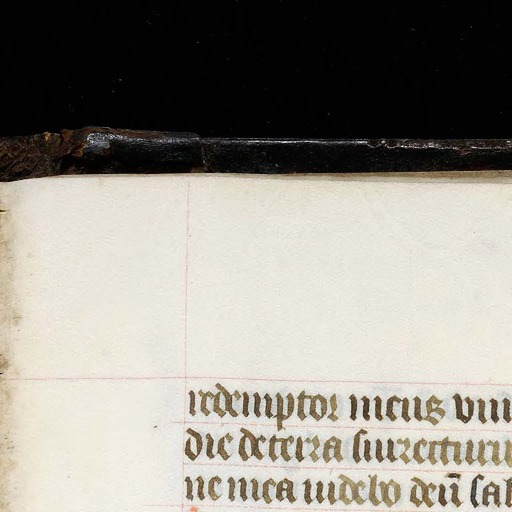 redemptor meus viui
die de terra surrecturu
ne mea uidebo deū sal